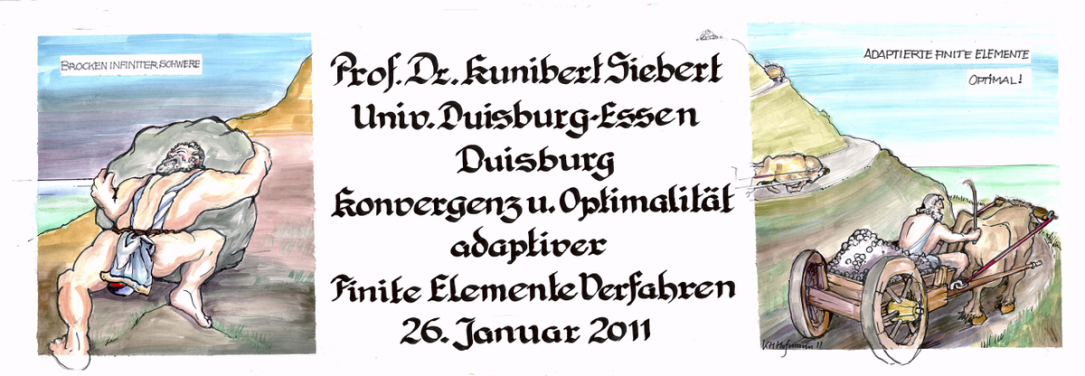 BROCKEN INFINITER SCHWERE
Prof. Dr. Kunibert Siebert
Univ. Duisburg-Essen
Duisburg
Konvergenz u. Optimalität
adaptiver
Finite Elemente Verfahren
26. Januar 2011
ADAPTIERTE FINITE ELEMENTE
OPTIMAL!